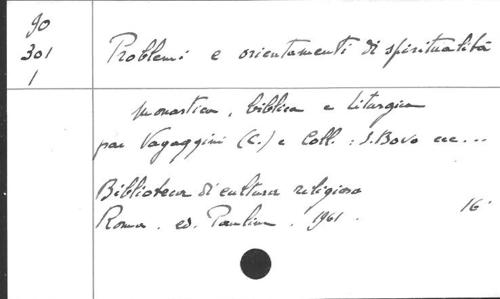 90
301
1
Problemi e orientamenti di spiritualità
monastica, biblica e liturgica
par Vagaggini (C.) e Coll. : S. Bovo ecc...
Biblioteca di cultura religiosa
Roma. ed. Paoline. 1961. 16°